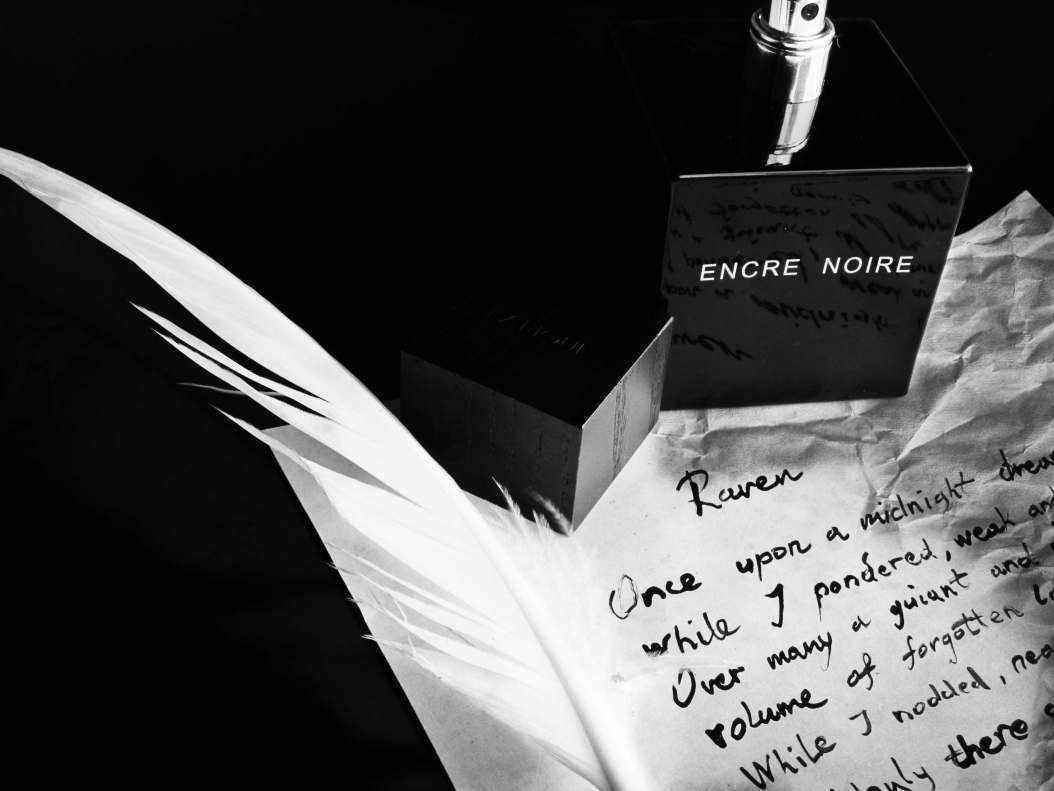 ENCRE NOIRE
Raven
Once upon a midnight drea
while I pondered, weak an
Over many a quiant and
volume of forgotten lo
While I nodded, nea
denly there